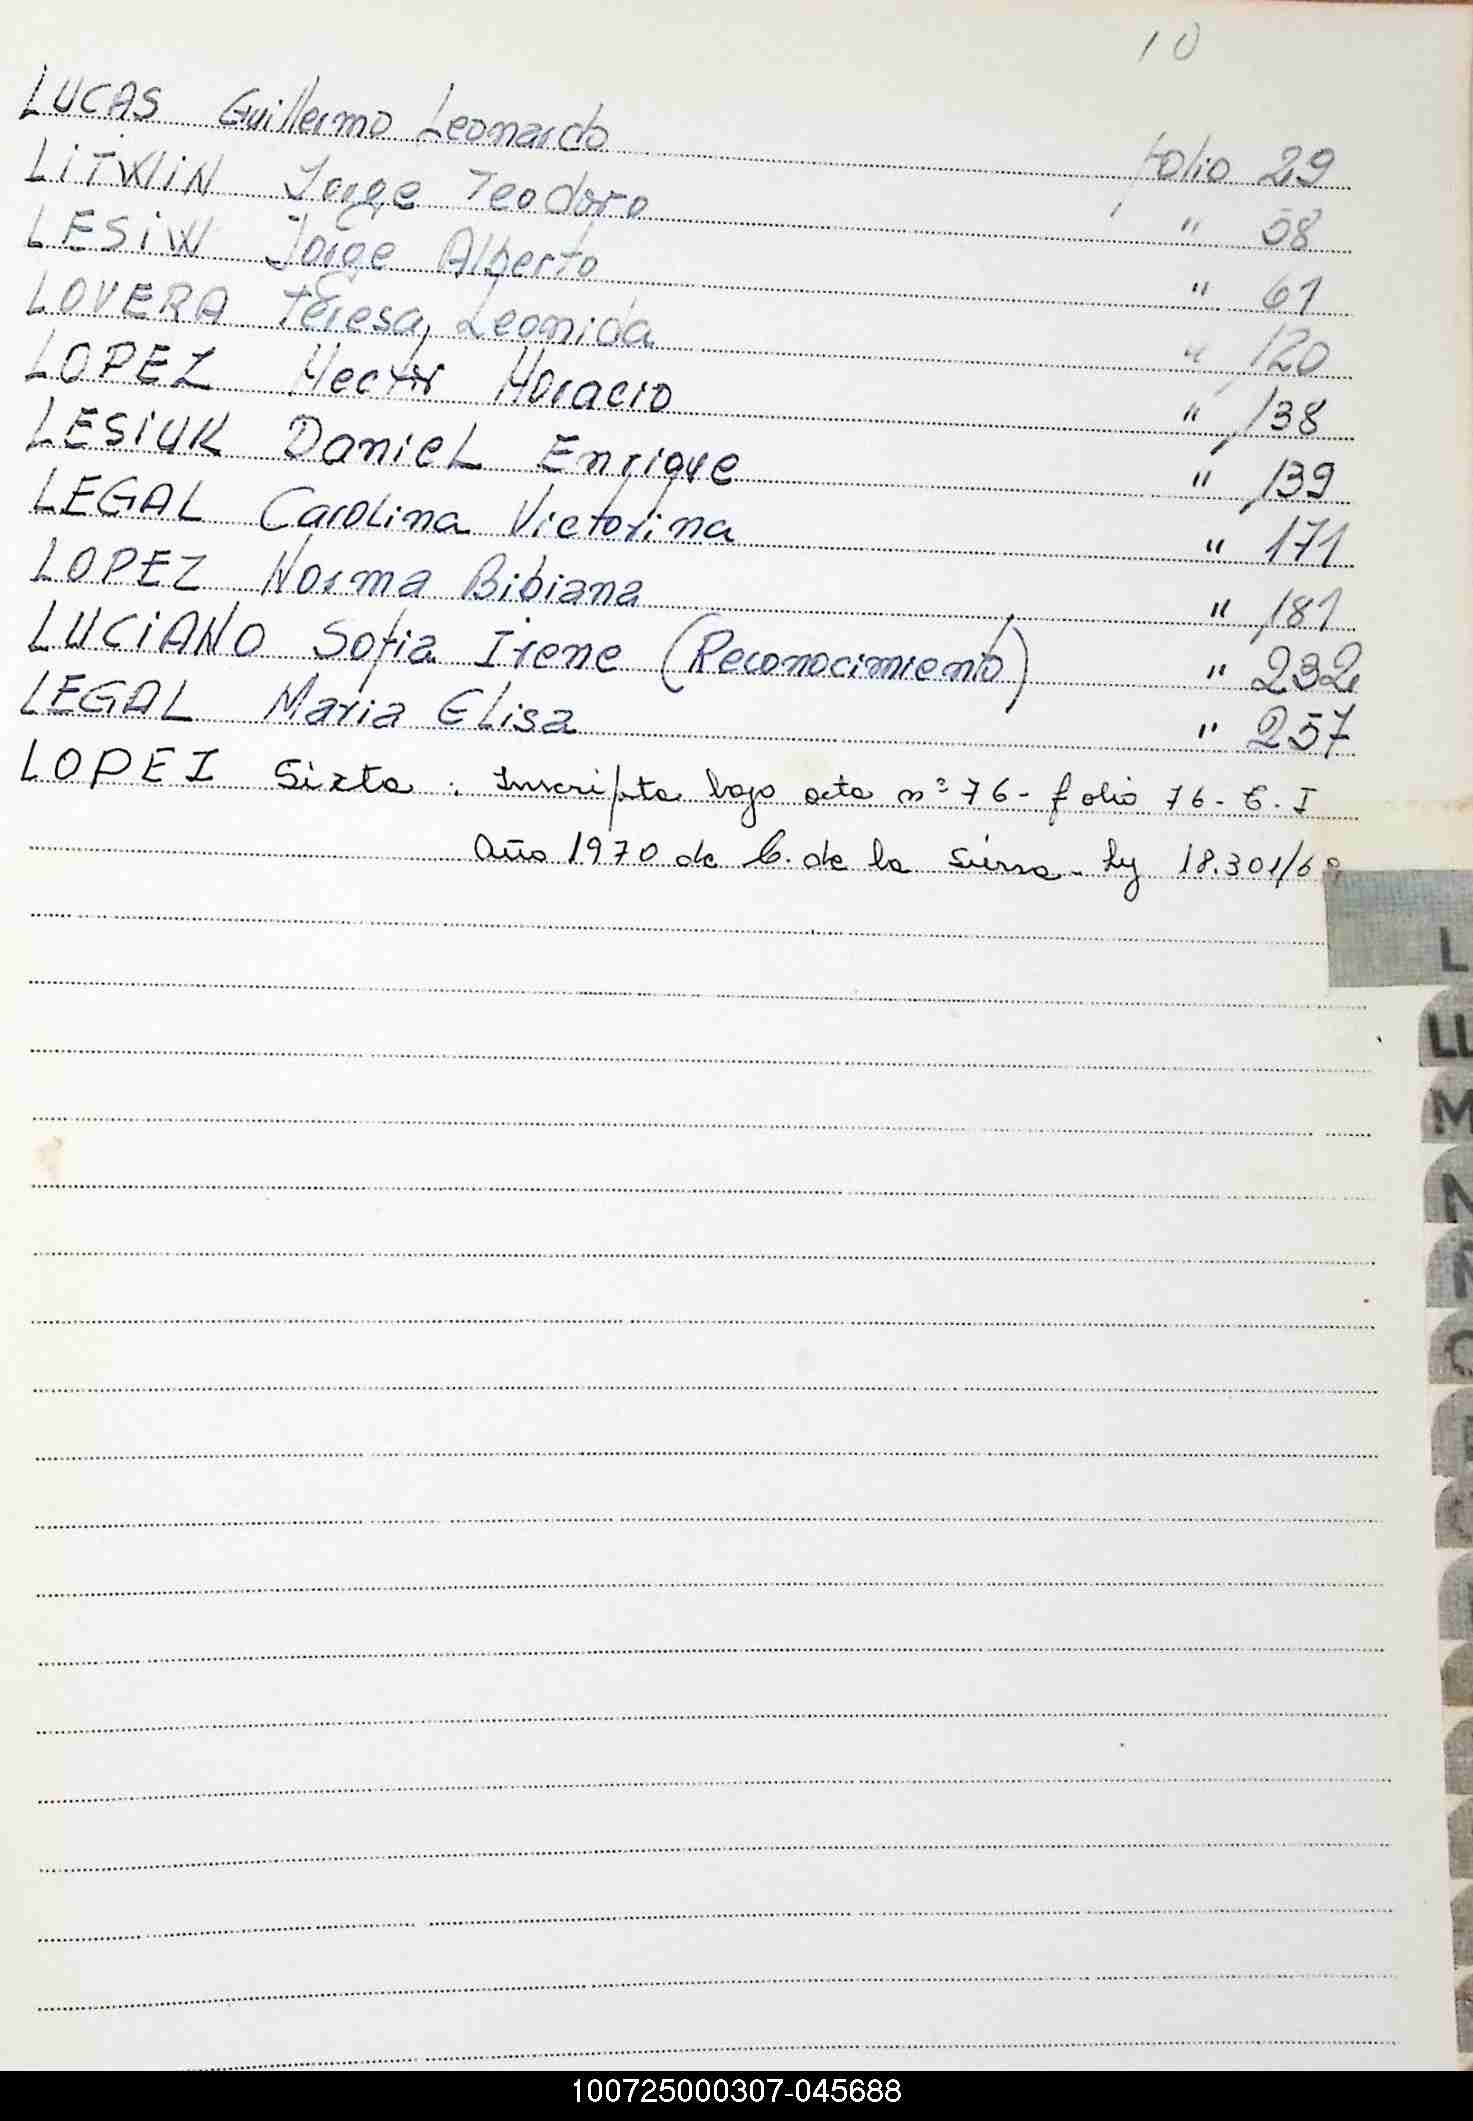 10
LUCAS Guillermo Leonardo folio 29
LITWIN Jorge Teodoro " 58
LESIW Jorge Alberto " 61
LOVERA Teresa Leonida " 120
LOPEZ Hector Horacio " 138
LESIUK Daniel Enrique " 139
LEGAL Carolina Victorina " 171
LOPEZ Norma Bibiana " 181
LUCIANO Sofia Irene (Reconocimiento) " 232
LEGAL Maria Elisa " 257
LOPEZ Sixta . Inscripta bajo acta nº 76 - folio 76 - T. I
Año 1970 de C. de la Sierra - Ley 18.301/69
L
LL
M
N
100725000307-045688